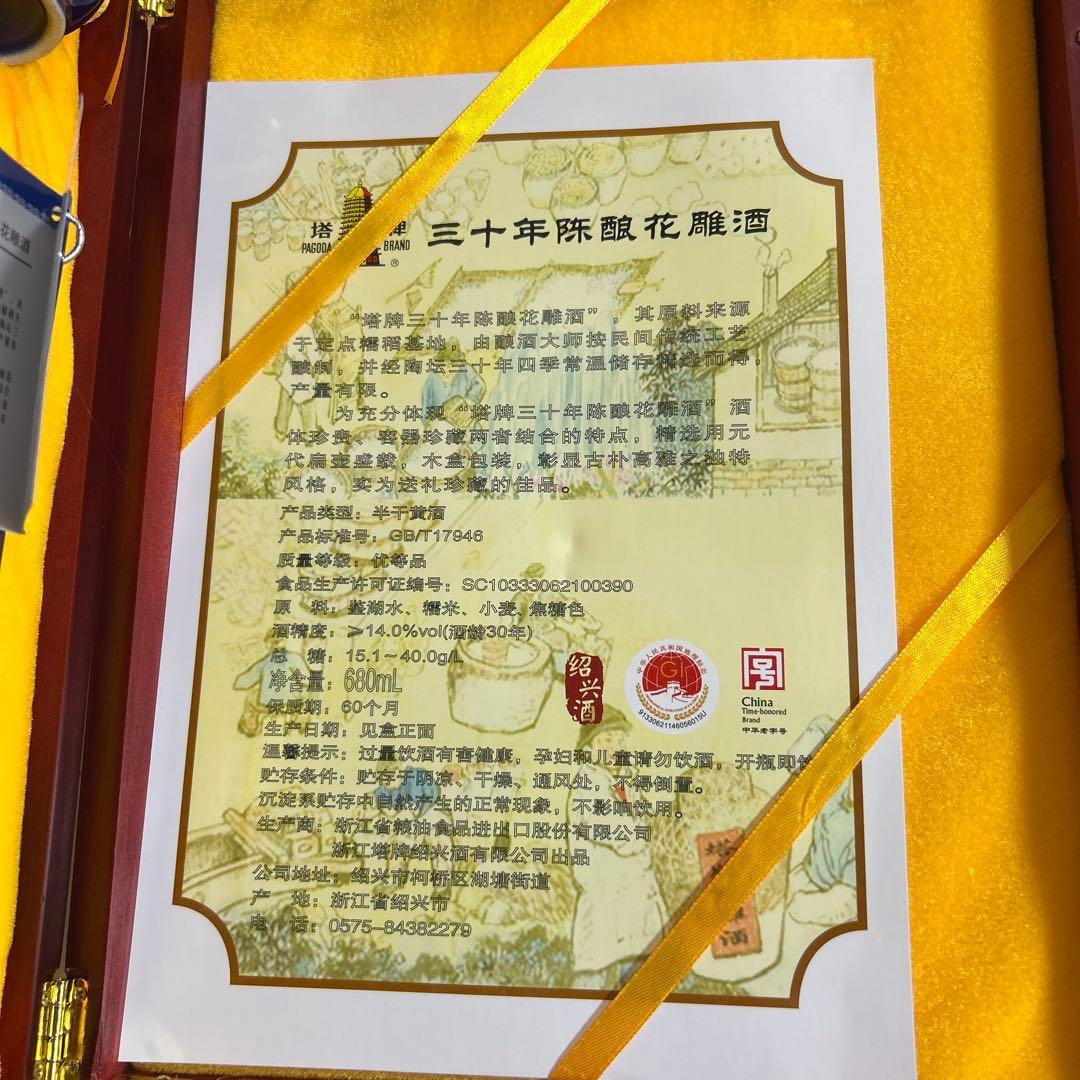 塔牌
PAGODA BRAND
®
三十年陈酿花雕酒
“塔牌三十年陈酿花雕酒”，其原料来源
于定点糯稻基地，由酿酒大师按民间传统工艺
酿制，并经陶坛三十年四季常温储存精选而得，
产量有限。
为充分体现“塔牌三十年陈酿花雕酒”酒
体珍贵、容器珍藏两者结合的特点，精选用元
代扁壶盛载，木盒包装，彰显古朴高雅之独特
风格，实为送礼珍藏的佳品。
产品类型：半干黄酒
产品标准号：GB/T17946
质量等级：优等品
食品生产许可证编号：SC10333062100390
原 料：鉴湖水、糯米、小麦、焦糖色
酒精度：≥14.0%vol(酒龄30年)
总 糖：15.1~40.0g/L
净含量：680mL
保质期：60个月
生产日期：见盒正面
温馨提示：过量饮酒有害健康，孕妇和儿童请勿饮酒，开瓶即饮
贮存条件：贮存于阴凉、干燥、通风处，不得倒置。
沉淀系贮存中自然产生的正常现象，不影响饮用。
生产商：浙江省粮油食品进出口股份有限公司
浙江塔牌绍兴酒有限公司出品
公司地址：绍兴市柯桥区湖塘街道
产 地：浙江省绍兴市
电 话：0575-84382279
绍兴酒
中华人民共和国地理标志
GI
91330621146056015U
China
Time-honored
Brand
中华老字号
花雕酒